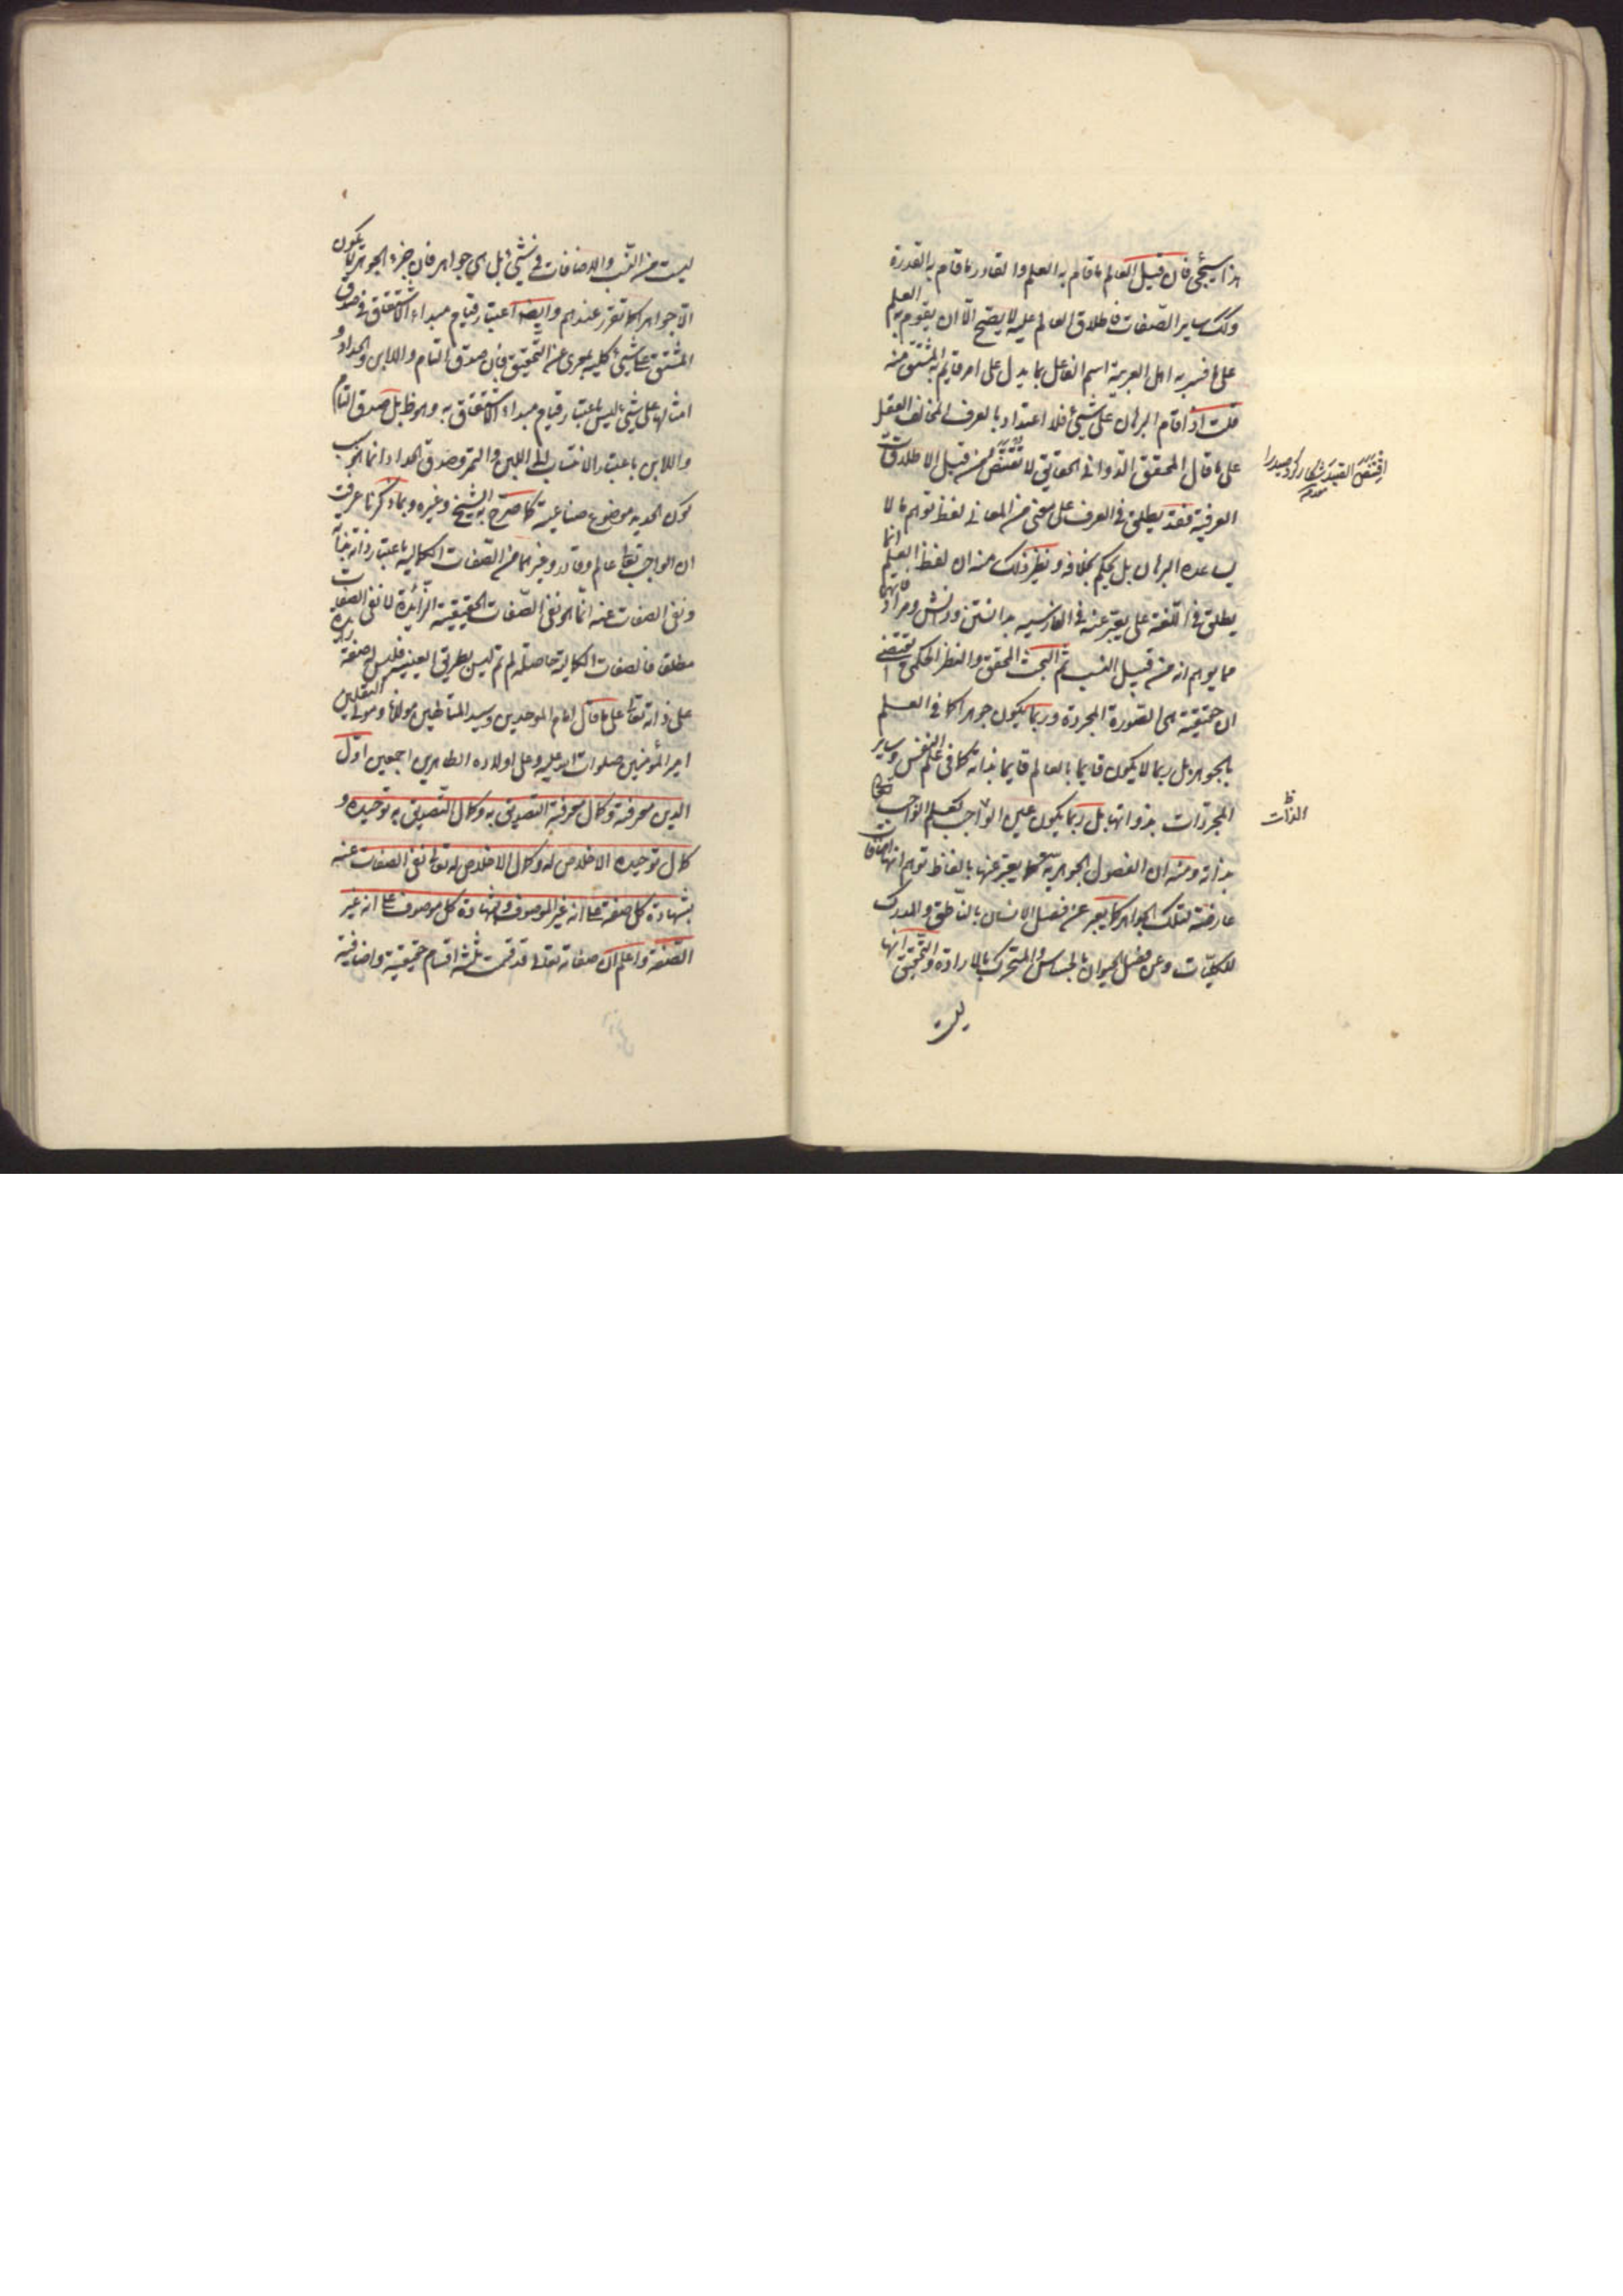 هذا سيجئ فان قيل العالم ما قام به العلم والقادر ما قام به القدرة
وكك ساير الصفات فاطلاق العالم عليه لا يصح الا ان يقوم به العلم
على ما فسر به اهل العربية اسم الفاعل بما يدل على امر قايم به المشتق منه
قلت اذا قام البرهان على شئ فلا اعتداد بالعرف المخالف العقل
على ما قال المحقق الدوانى الحقايق لا تقتنص من قبل الاطلاقات
العرفية فقد يطلق فى العرف على معنى من المعانى لفظ توهم ما لا
يساعده البرهان بل يحكم بخلافه ونظير ذلك منه ان لفظ العلم انما
يطلق فى اللغة على يعبر عنه فى الفارسيه بدانستن ودانش ومرادفاتهما
مما يوهم انه من قبيل النسب ثم البحث المحقق والنظر الحكمى يقتضى
ان حقيقته هى الصورة المجردة وربما يكون جوهرا كما فى العلم
بالجوهر بل ربما لا يكون قايما بالعالم قايما بذاته كما فى علم النفس وساير
المجردات بذواتها بل ربما يكون عين الواجب كعلم الواجب تعالى
بذاته ومنه ان الفصول الجوهرية كما يعبر عنها بالفاظ توهم انها اضافات
عارضة لتلك الجواهر كما يعبر عن فصل الانسان بالناطق والمدرك
للكليات وعن فصل الحيوان بالحساس والمتحرك بالارادة والتحقيق انها
ليست
الذات
ليست من النسب والاضافات فى شئ بل هى جواهر فان جزء الجوهر لا يكون
الا جواهر كما تقرر عندهم وايضا اعتبار قيام مبداء الاشتقاق فى صدق
المشتق على شئ كلية بمعرى عن التحقيق فان صدق التام واللابن والحداد و
امثالها على شئ ليس باعتبار قيام مبداء الاشتقاق به وهو ظ بل صدق التام
واللابن باعتبار الانتساب الى اللبن والتمر وصدق الحداد انما هو بسبب
كون الحديد موضوع صناعية كما صرح به الشيخ وغيره وبما ذكرنا عرفت
ان الواجب تعالى عالم وقادر وغيرهما من الصفات الكمالية باعتبار ذاته بذاته
ونفى الصفات عنه انما هو نفى الصفات الحقيقية الزائدة لا نفى الصفات
مطلقا فالصفات الكمالية حاصلة له تم ليس بطريق العينية فليس له صفة زايدة
على ذاته تعالى على ما قال امام الموحدين وسيد المتالهين مولانا ومولى الثقلين
امير المؤمنين صلوات الله عليه وعلى اولاده الطاهرين اجمعين اول
الدين معرفته وكمال معرفته التصديق به وكمال التصديق به توحيده و
كمال توحيده الاخلاص له وكمال الاخلاص له تعالى نفى الصفات عنه
بشهادة كل صفة على انه غير الموصوف وشهادة كل موصوف على انه غير
الصفة واعلم ان صفاته تعالى قد قسمت ثلثة اقسام حقيقية واضافية